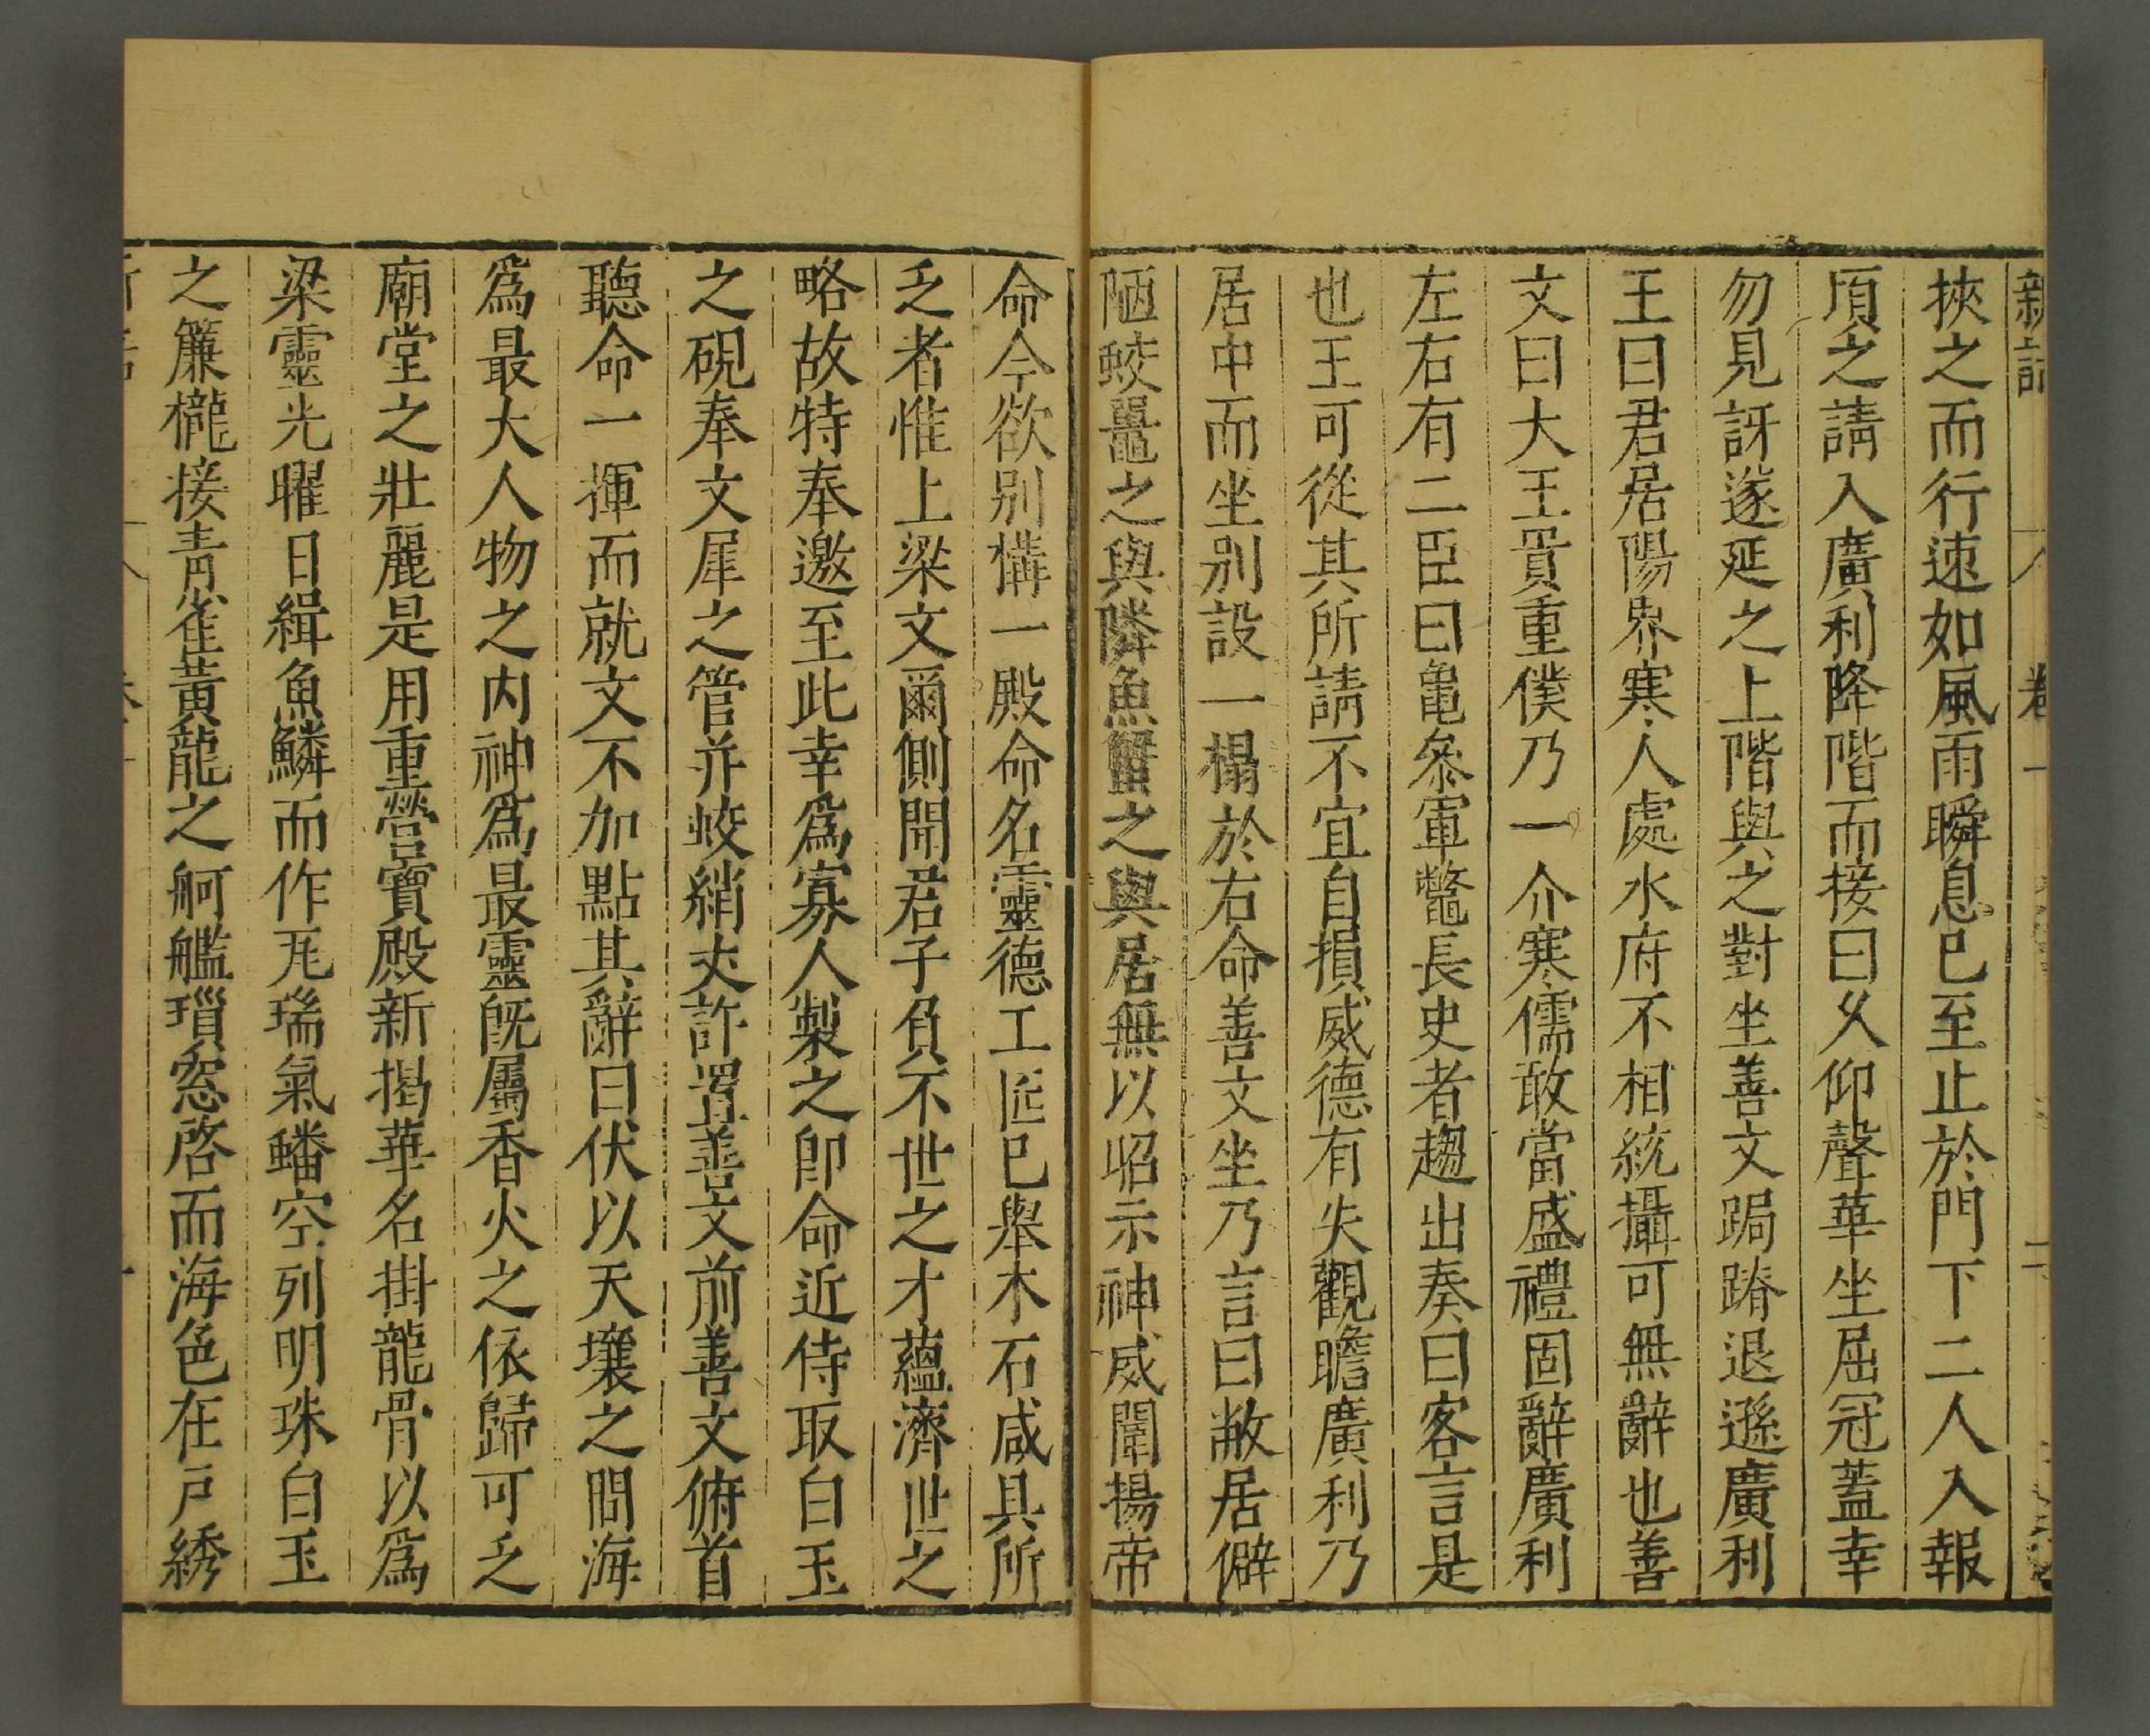 新話 卷一 二
挾之而行速如風雨瞬息已至止於門下二人入報
頃之請入廣利降階而接曰乆仰聲華坐屈冠蓋幸
勿見訝遂延之上階與之對坐善文跼蹐退遜廣利
王曰君居陽界寒人處水府不相統攝可無辭也善
文曰大王貴重僕乃一介寒儒敢當盛禮固辭廣利
左右有二臣曰亀叅軍鼈長史者趨出奏曰客言是
也王可從其所請不宜自損威德有失觀瞻廣利乃
居中而坐别設一榻於右命善文坐乃言曰敝居僻
陋蛟鼉之與隣魚蟹之與居無以昭示神威闡揚帝
命今欲别構一殿命名靈德工匠已舉木石咸具所
乏者惟上梁文爾側聞君子負不世之才蘊濟世之
略故特奉邀至此幸爲寡人製之卽命近侍取白玉
之硯奉文犀之管并蛟綃丈許置善文前善文俯首
聽命一揮而就文不加點其辭曰伏以天壤之間海
爲最大人物之内神爲最靈旣屬香火之依歸可乏
廟堂之壯麗是用重營寶殿新揭華名掛龍骨以爲
梁靈光曜日緝魚鱗而作瓦瑞氣蟠空列明珠白玉
之簾櫳接青雀黄龍之舸艦瑣窓啓而海色在戸綉